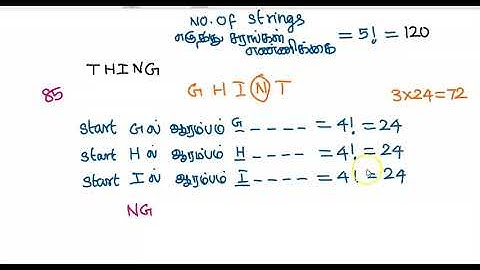 NO. Of Strings
எழுத்து சரங்கள் எண்ணிக்கை = 5! = 120
THING
85
G H I N T
3x24=72
Start G ல் ஆரம்பம் G - - - - = 4! = 24
Start H ல் ஆரம்பம் H - - - - = 4! = 24
Start I ல் ஆரம்பம் I - - - - = 4! = 24
NG